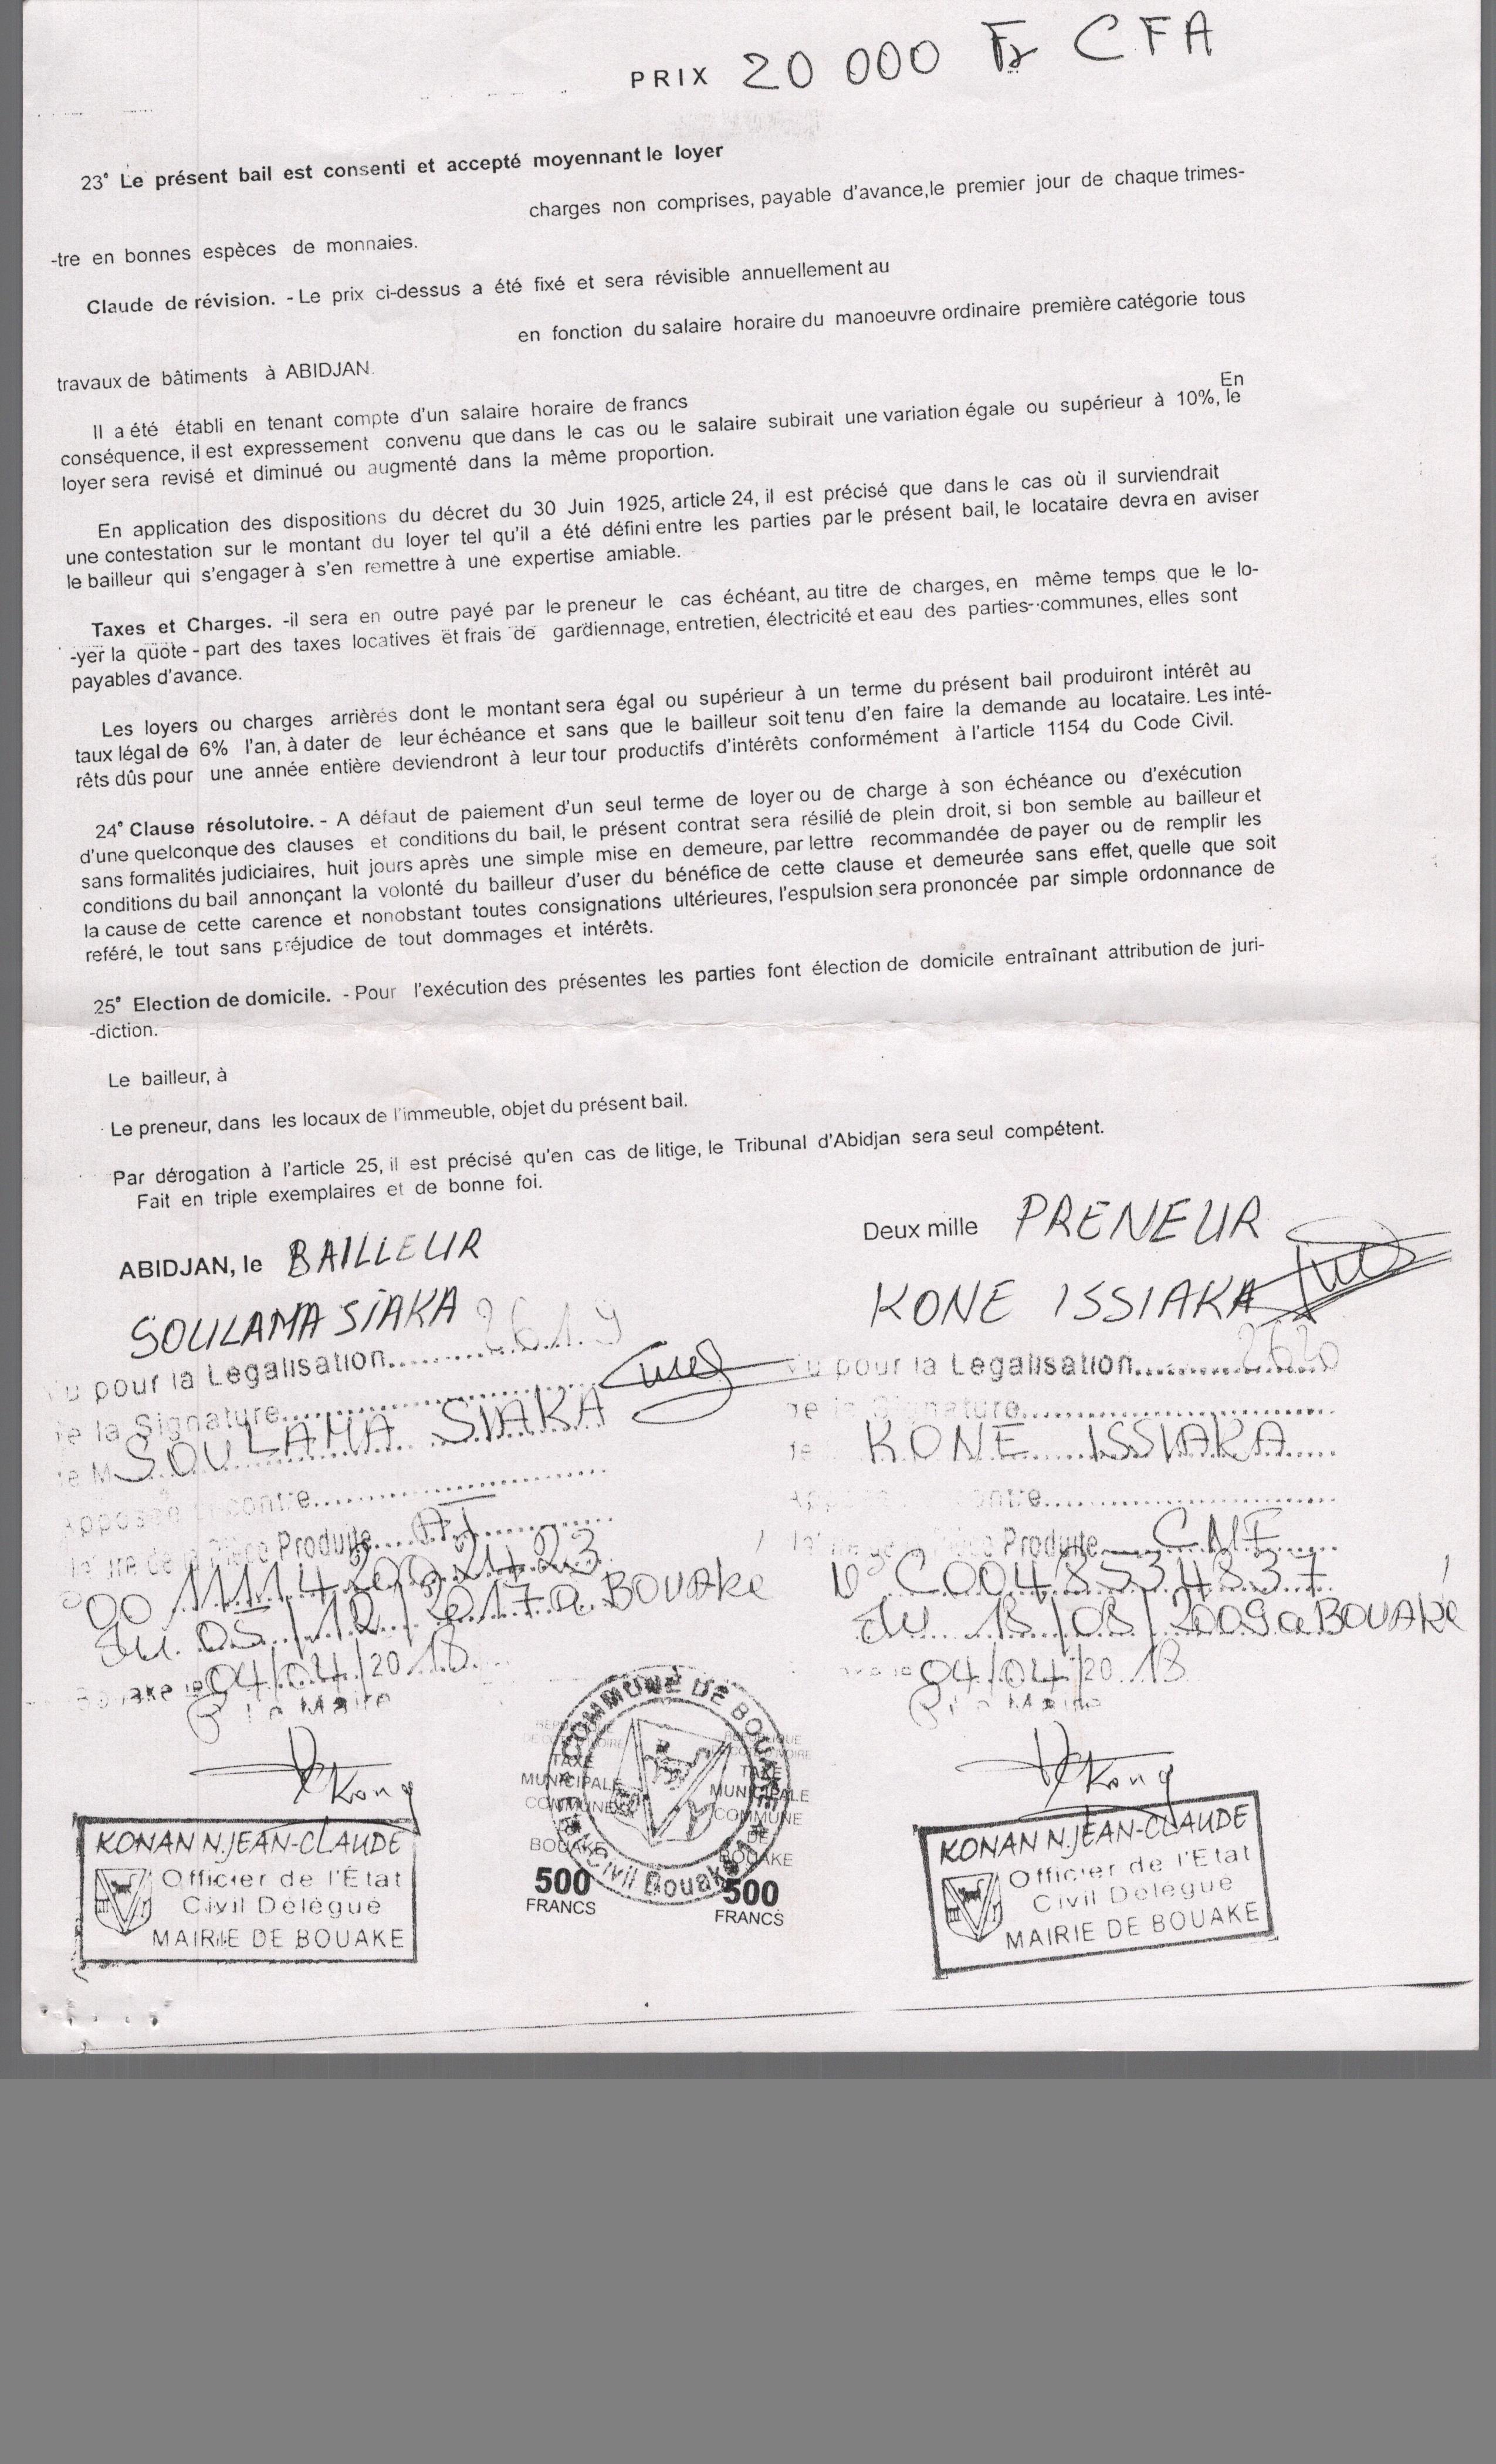 PRIX 20 000 Fr CFA
23° Le présent bail est consenti et accepté moyennant le loyer
charges non comprises, payable d'avance,le premier jour de chaque trimes-
-tre en bonnes espèces de monnaies.
Claude de révision. - Le prix ci-dessus a été fixé et sera révisible annuellement au
en fonction du salaire horaire du manoeuvre ordinaire première catégorie tous
travaux de bâtiments à ABIDJAN.
Il a été établi en tenant compte d'un salaire horaire de francs En
conséquence, il est expressement convenu que dans le cas ou le salaire subirait une variation égale ou supérieur à 10%, le
loyer sera revisé et diminué ou augmenté dans la même proportion.
En application des dispositions du décret du 30 Juin 1925, article 24, il est précisé que dans le cas où il surviendrait
une contestation sur le montant du loyer tel qu'il a été défini entre les parties par le présent bail, le locataire devra en aviser
le bailleur qui s'engager à s'en remettre à une expertise amiable.
Taxes et Charges. -il sera en outre payé par le preneur le cas échéant, au titre de charges, en même temps que le lo-
-yer la quote - part des taxes locatives et frais de gardiennage, entretien, électricité et eau des parties-communes, elles sont
payables d'avance.
Les loyers ou charges arrièrés dont le montant sera égal ou supérieur à un terme du présent bail produiront intérêt au
taux légal de 6% l'an, à dater de leur échéance et sans que le bailleur soit tenu d'en faire la demande au locataire. Les inté-
rêts dûs pour une année entière deviendront à leur tour productifs d'intérêts conformément à l'article 1154 du Code Civil.
24° Clause résolutoire. - A défaut de paiement d'un seul terme de loyer ou de charge à son échéance ou d'exécution
d'une quelconque des clauses et conditions du bail, le présent contrat sera résilié de plein droit, si bon semble au bailleur et
sans formalités judiciaires, huit jours après une simple mise en demeure, par lettre recommandée de payer ou de remplir les
conditions du bail annonçant la volonté du bailleur d'user du bénéfice de cette clause et demeurée sans effet, quelle que soit
la cause de cette carence et nonobstant toutes consignations ultérieures, l'espulsion sera prononcée par simple ordonnance de
reféré, le tout sans préjudice de tout dommages et intérêts.
25° Election de domicile. - Pour l'exécution des présentes les parties font élection de domicile entraînant attribution de juri-
-diction.
Le bailleur, à
Le preneur, dans les locaux de l'immeuble, objet du présent bail.
Par dérogation à l'article 25, il est précisé qu'en cas de litige, le Tribunal d'Abidjan sera seul compétent.
Fait en triple exemplaires et de bonne foi.
ABIDJAN, le BAILLEUR
SOULAMA SIAKA
Vu pour la Legalisation 2619
de la Signature
de M SOULAMA SIAKA
Apposée ci-contre
Nature de la Pièce Produite AI
du 05/10/2017 a BOUAKe
Bouake le 04/04/2018
P. Le Maire
KONAN N.JEAN-CLAUDE
Officier de l'État
Civil Délégué
MAIRIE DE BOUAKE
COMMUNE DE BOUAKE
Civil Bouaké
TAXE
MUNICIPALE
COMMUNE
DE
BOUAKE
500
FRANCS
TAXE
MUNICIPALE
COMMUNE
DE
BOUAKE
500
FRANCS
Deux mille PRENEUR
KONE ISSIAKA
Vu pour la Legalisation 2620
de la Signature
de KONE ISSIAKA
Apposée ci-contre
Nature de la Pièce Produite CNI
N° C0048534837
du 18/08/2009 a BOUAKe
04/04/2018
P. Le Maire
KONAN N.JEAN-CLAUDE
Officier de l'Etat
Civil Délégué
MAIRIE DE BOUAKE